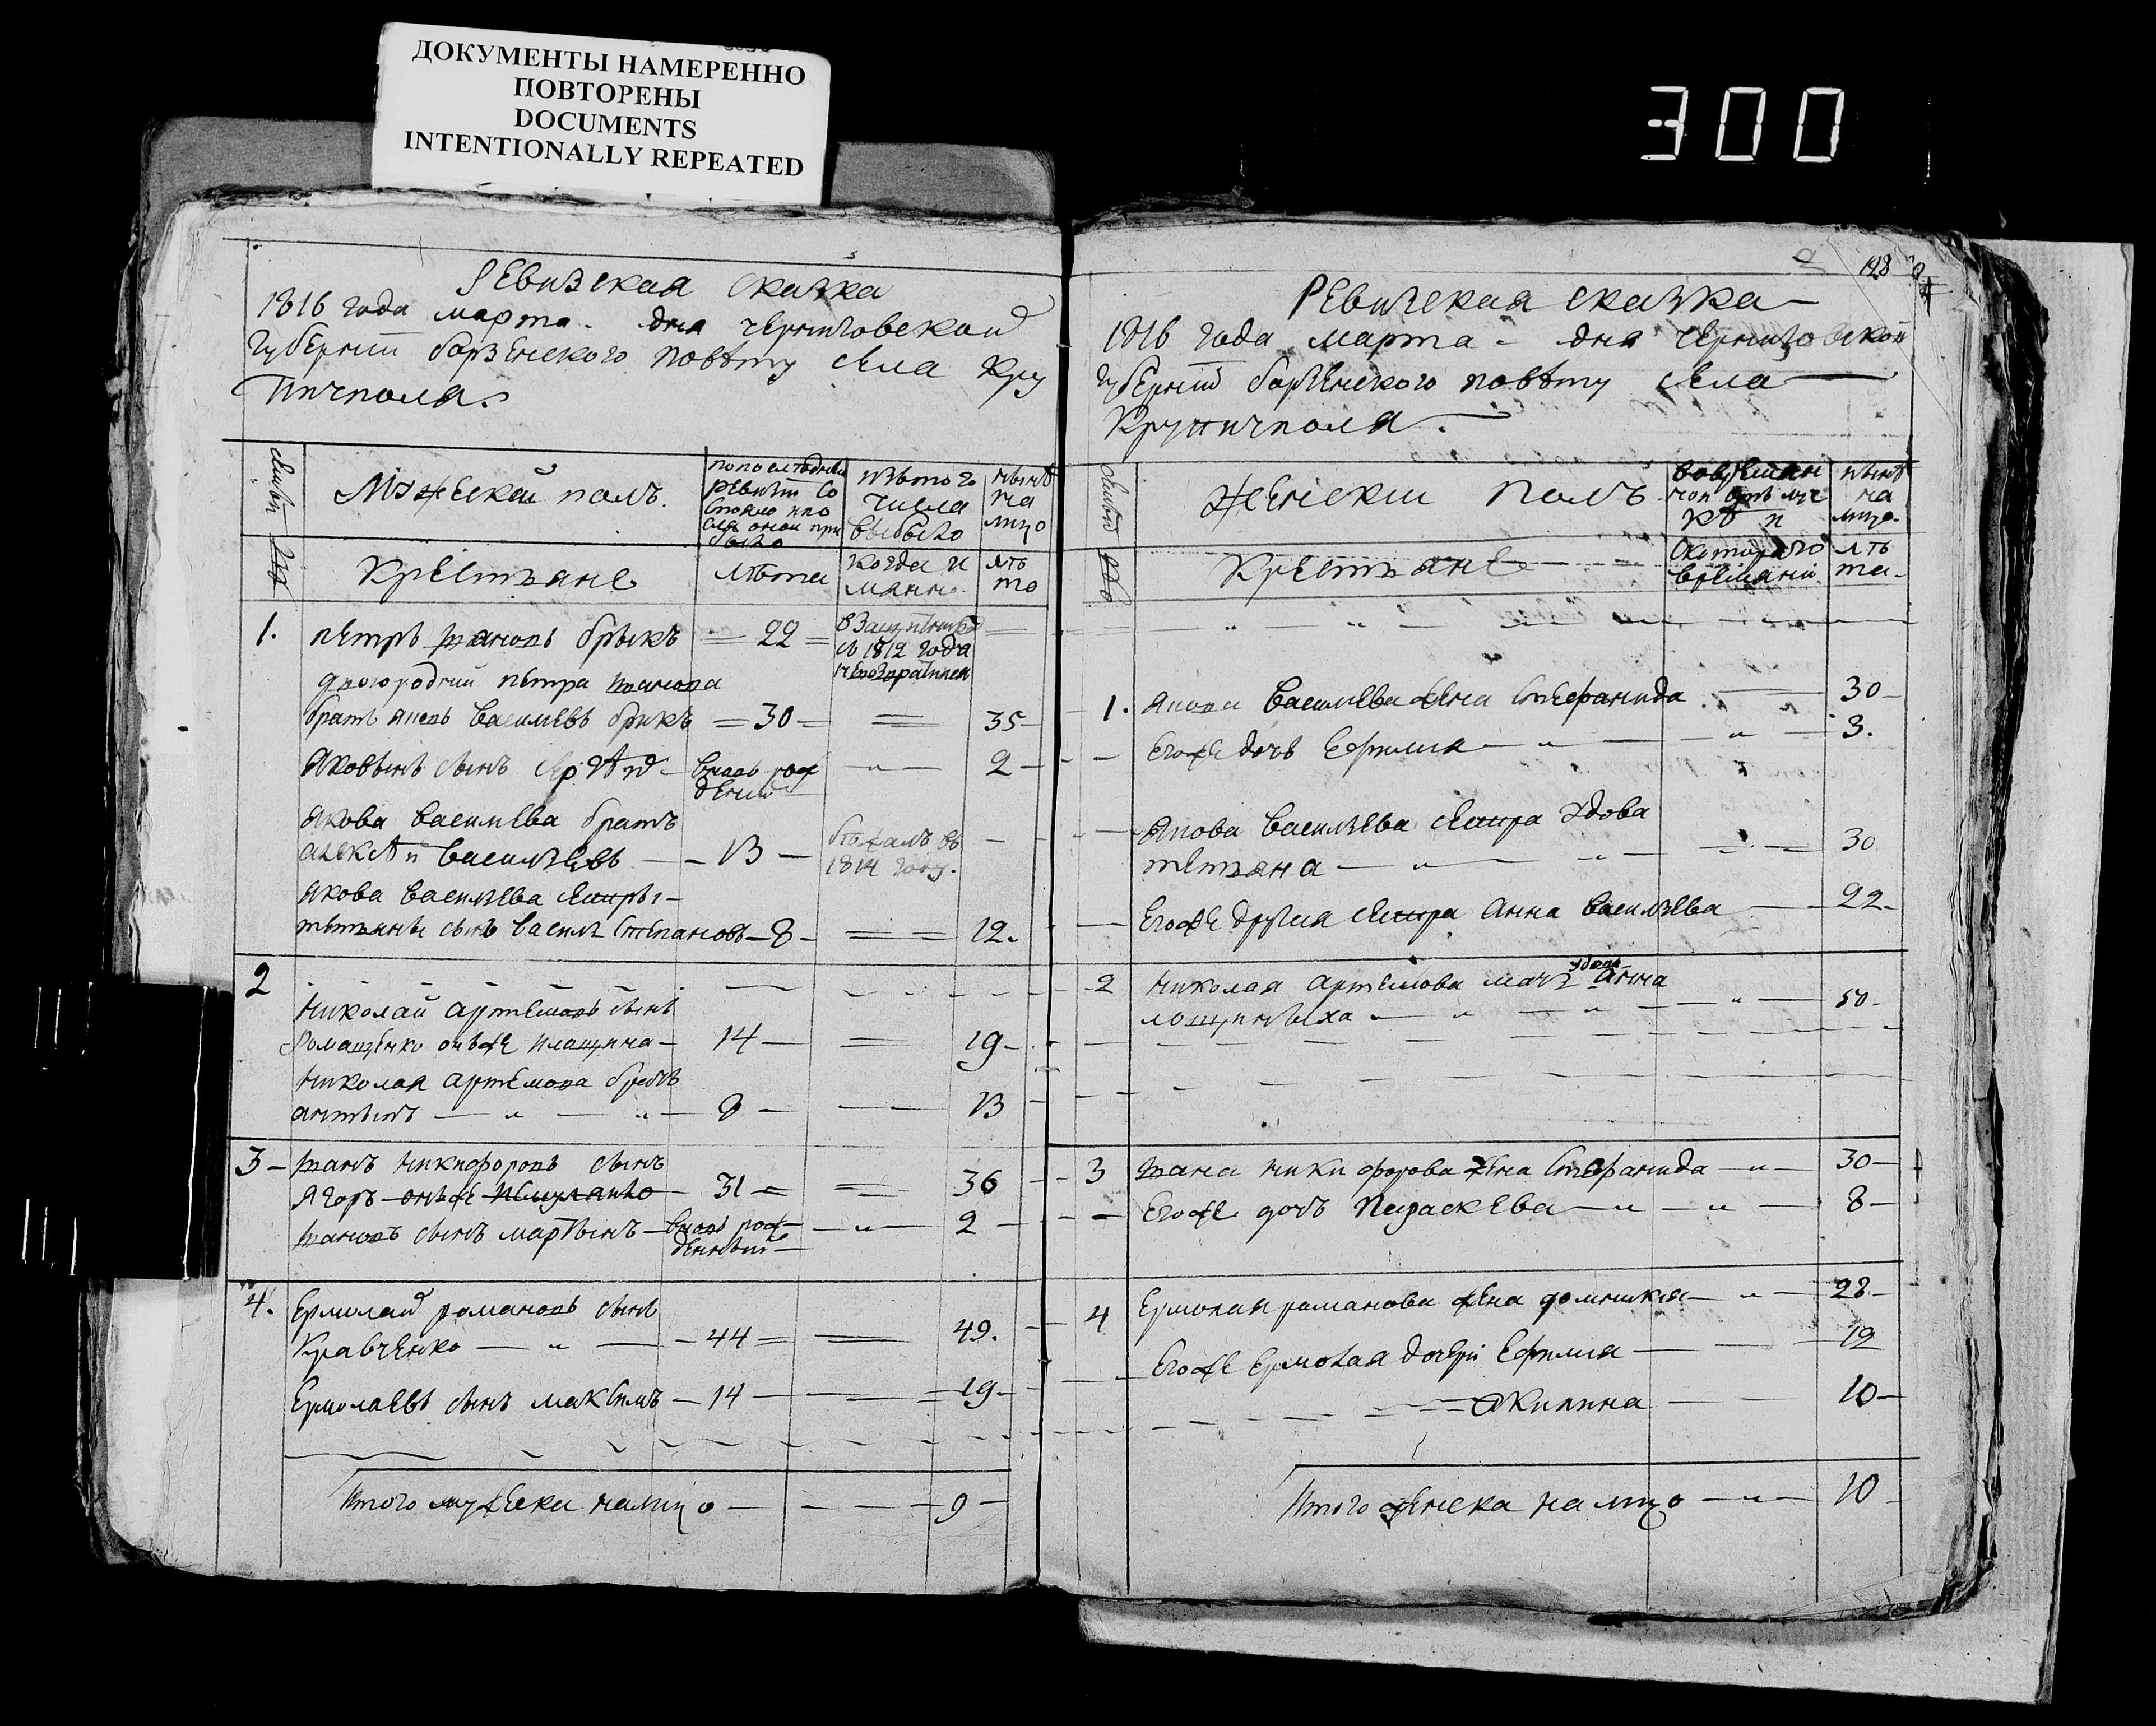 ДОКУМЕНТЫ НАМЕРЕННО
ПОВТОРЕНЫ
DOCUMENTS
INTENTIONALLY REPEATED
300
Ревизская сказка
1816 года марта дня черниговской
Губернии борзенского повѣту села Кру
пичполя.
Мужеский полъ.
по последней
ревизии со
стояло и по
сля оной при
было
изъ того
числа
выбыло
нынѣ
на
лицо
Крестьяне
лѣта
когда и
лѣ
та
1.
петръ ивановъ брыкъ = 22 =
в 1812 года
двоюродний петра иванова
братъ яковъ васильевъ брикъ = 30 = 35
Яковынъ сынъ Сергѣй вновь рож 2
дений
Якова васильева братъ
алексѣй васильевъ 13
1814 году.
Якова васильева сестры
тетьяны сынъ василь степановъ 8 12.
2
николай артемовъ сынъ
ромащенко онъ же 14 19
николая артемова братъ
антипъ 8 13
3 иванъ никифоровъ сынъ
Ягоръ онъ же 31 = 36
ивановъ сынъ мартынъ вновь рож 2
денный
4. Ермолай романовъ сынъ
Кравченко 44 = 49.
Ермолаевъ сынъ максимъ 14 19
Итого мужеска налицо 9
128
Ревизская сказка
1816 года марта дня черниговской
губернии борзенского повѣту села
Крупичполя.
Женский полъ
во временн
ной отлуч
кѣ и
нынѣ
на
лицо.
Крестьяне
с которого
времяни
лѣ
та
1. Якова васильева жена Стефанида 30
Егоже дочь Ефимия 3.
Якова васильева сестра вдова
тетьяна 30
Егоже другая сестра анна васильева 22
2 николая артемова мать вдова анна
50
3 ивана никифорова жена Стефанида 30
Егоже дочь параскева 8
4 Ермолая романова жена домникия 28
Егоже Ермолая дочери Ефимия 12
Акилина 10
Итого женска налицо 10